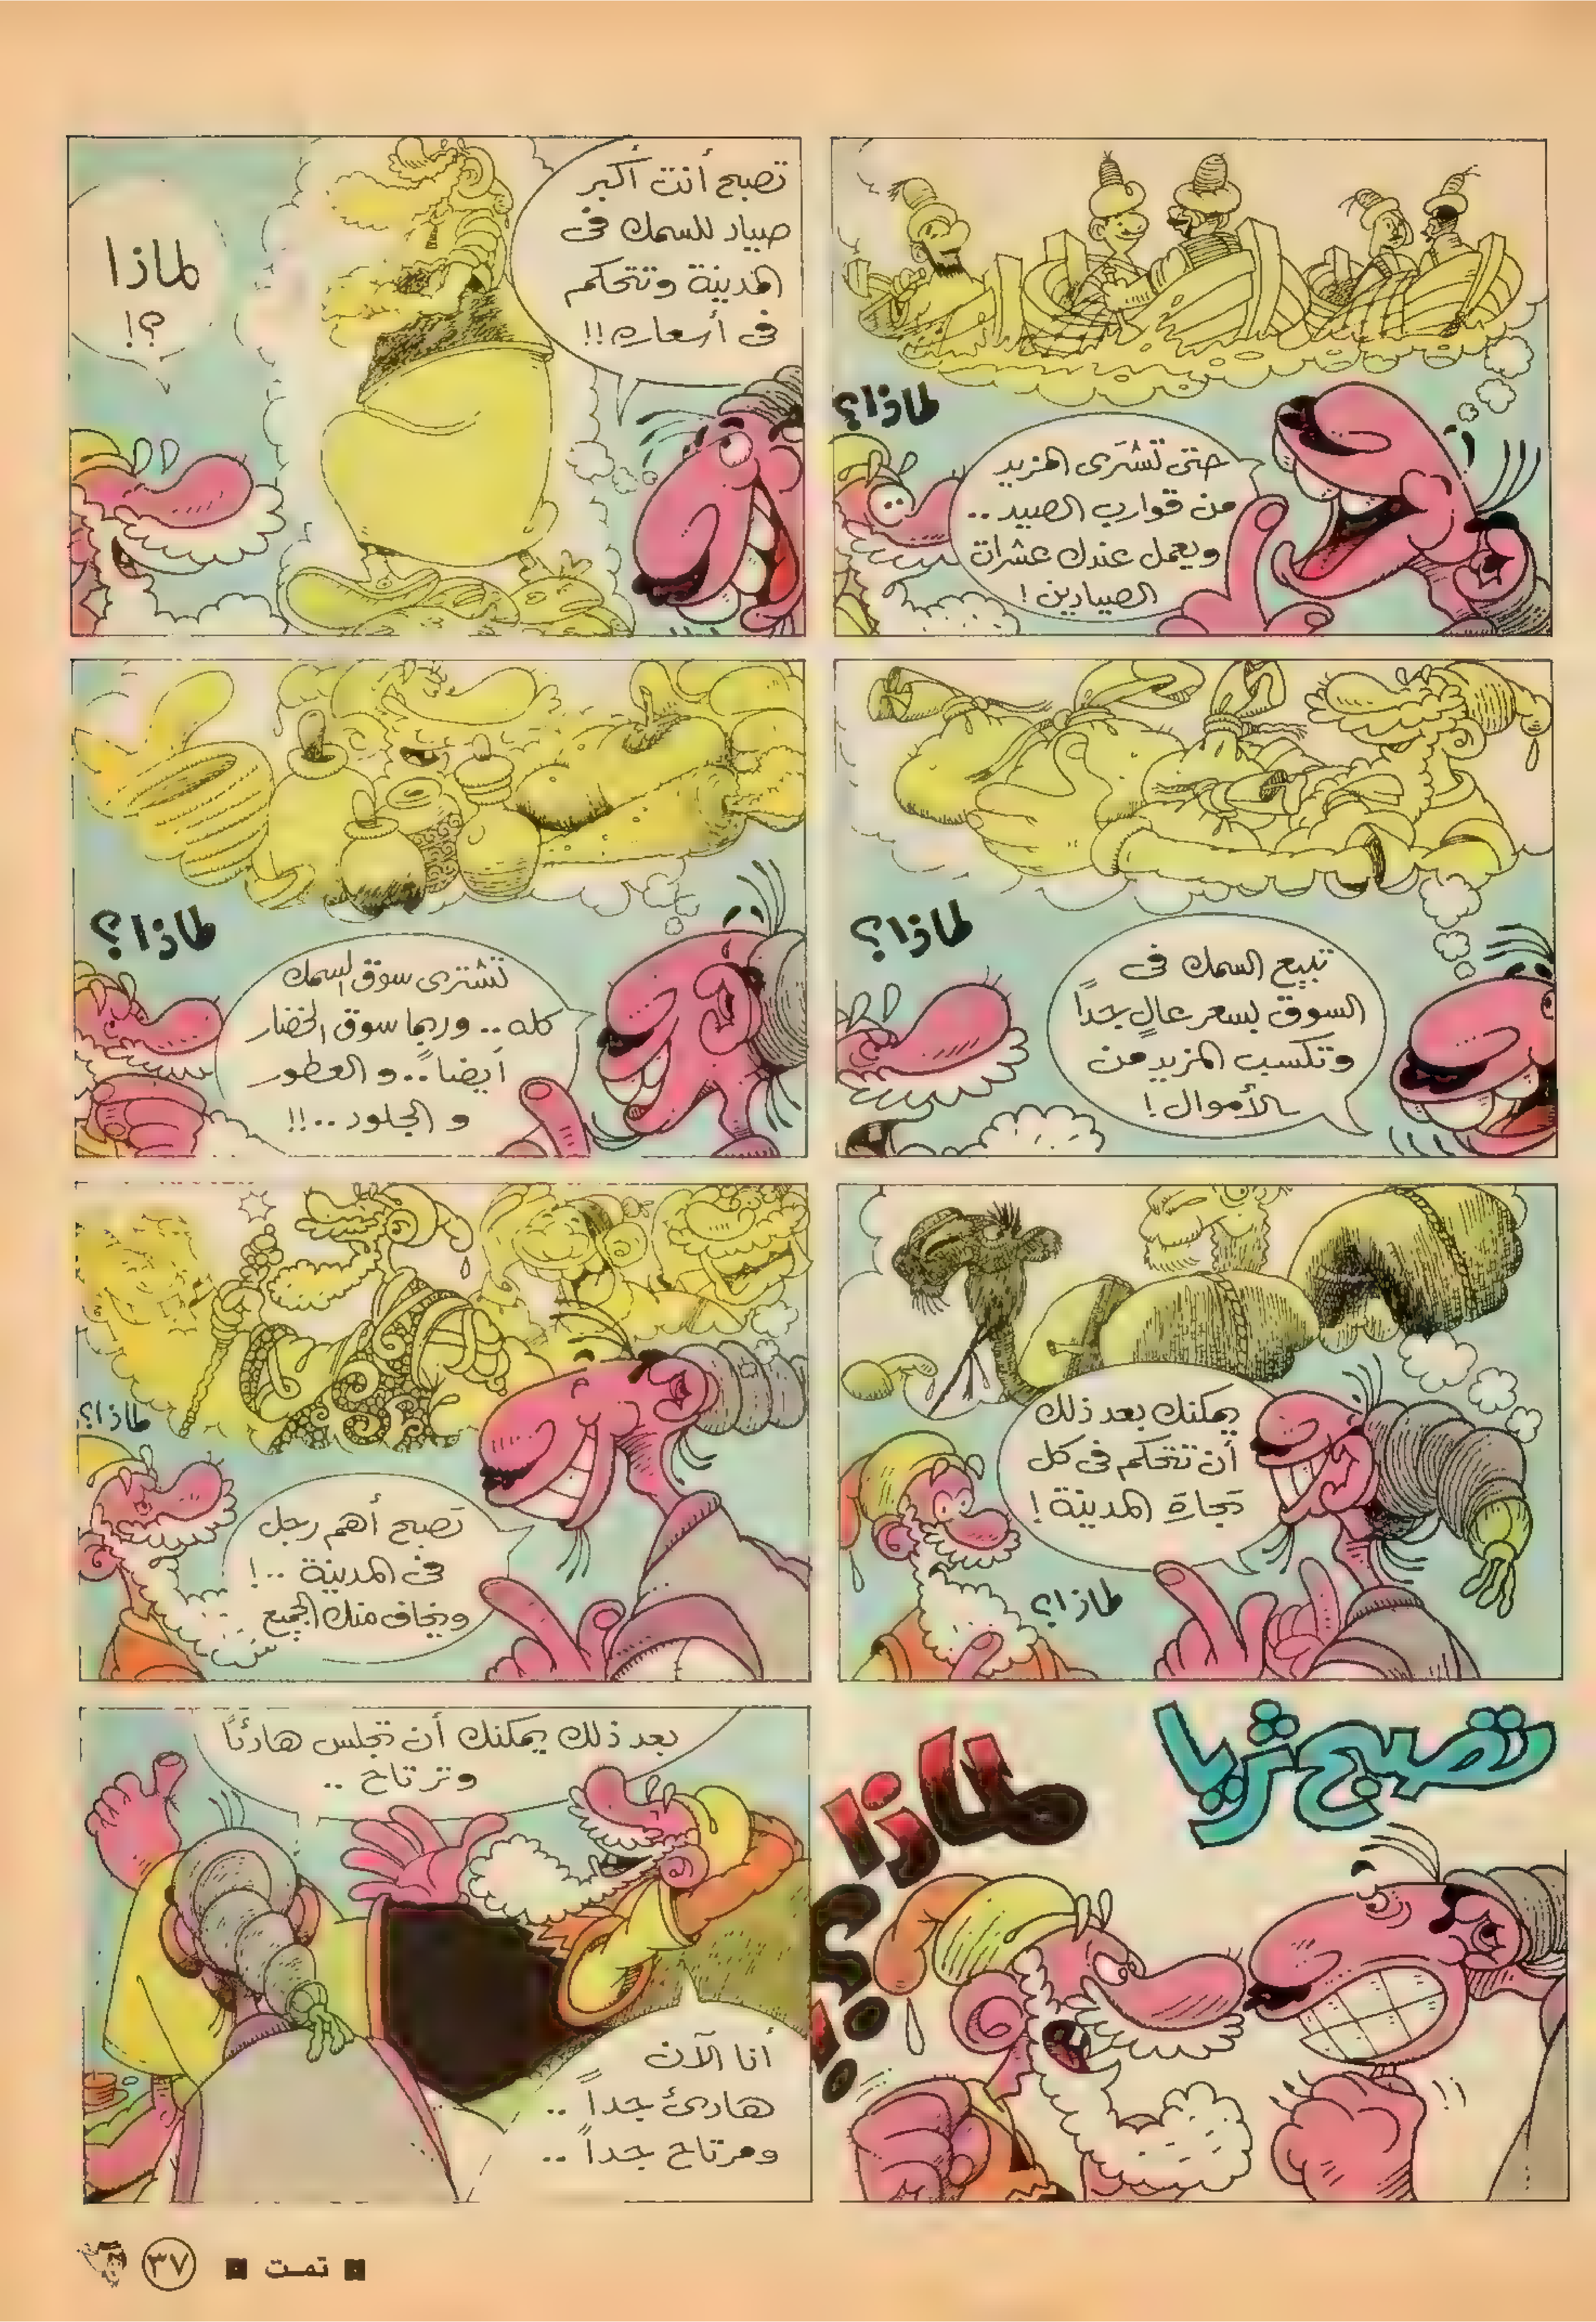 لماذا؟
حتى تشترى المزيد
من قوارب الصيد ..
ويعمل عندك عشرات
الصيادين !
تصبح أنت أكبر
صياد للسمك فى
المدينة وتتحكم
فى أسعاره !!
لماذا
؟!
تبيع السمك فى
السوق بسعر عالٍ جداً
وتكسب المزيد من
الأموال !
لماذا؟
تشترى سوق السمك
كله .. وربما سوق الخضار
أيضاً .. و العطور
و الجلود ..!!
لماذا؟
يمكنك بعد ذلك
أن تتحكم فى كل
تجارة المدينة !
لماذا؟
تصبح أهم رجل
فى المدينة ..!
ويخاف منك الجميع
لماذا؟
تصبح ثريا
لماذا
؟!
بعد ذلك يمكنك أن تجلس هادئاً
وترتاح ..
أنا الآن
هادئ جداً ..
ومرتاح جداً ..
■ تمـت ■
٣٧